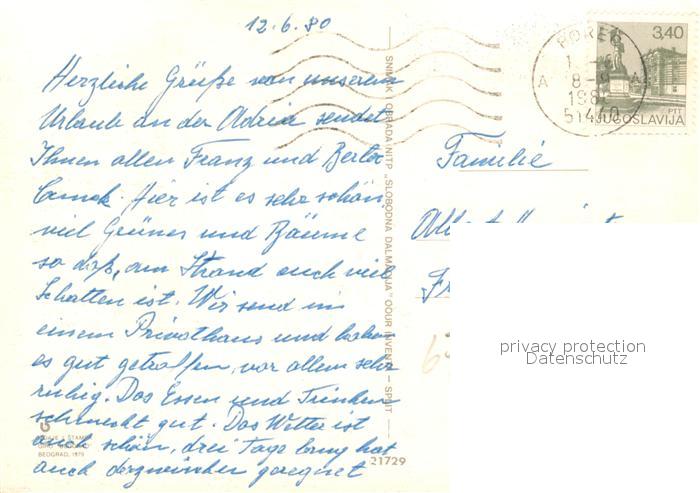 12.6.80
Herzliche Grüße von unserem
Urlaub an der Adria sendet
Ihnen allen Franz und Berta
Hier ist es sehr schön,
viel Grünes und Bäume
so daß, am Strand auch viel
Schatten ist. Wir send in
einem Privathaus und haben
es gut getroffen, vor allem sehr
ruhig. Das Essen und Trinken
schmeckt gut. Das Wetter ist
auch schön, drei Tage lang hat
auch dazwischen geregnet
BEOGRAD, 1979
SNIMAK I OBRADA NITP „SLOBODNA DALMACIJA" OOUR INVENT — SPLIT
21729
POREČ
8-9
51440
3,40
PTT
JUGOSLAVIJA
Familie
privacy protection
Datenschutz